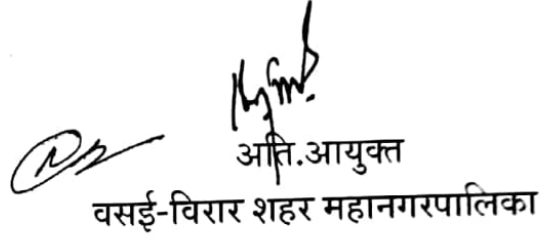 अति.आयुक्त
वसई-विरार शहर महानगरपालिका